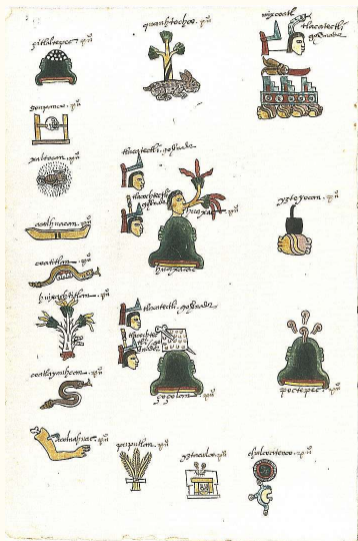 çitlaltepec. puo
quauhtochco. puo
mixcoatl
tlacatectli
gouernador
çonpanco. puo
xaltocan. puo
tlacatectli. gouernador
tlacochtectli
gouernador
huaxac. puo
acalhuacan. puo
yzteyocan. puo
coatitlan. puo
huixachtitlan. puo
tlacatectli. gouernador
tlacochtectli
gouernador
coatlayauhcan. puo
çoçolan. puo
poctepec. puo
acolnahuac. puo
puputlan. puo
yztacalco. puo
chalcoatenco. puo